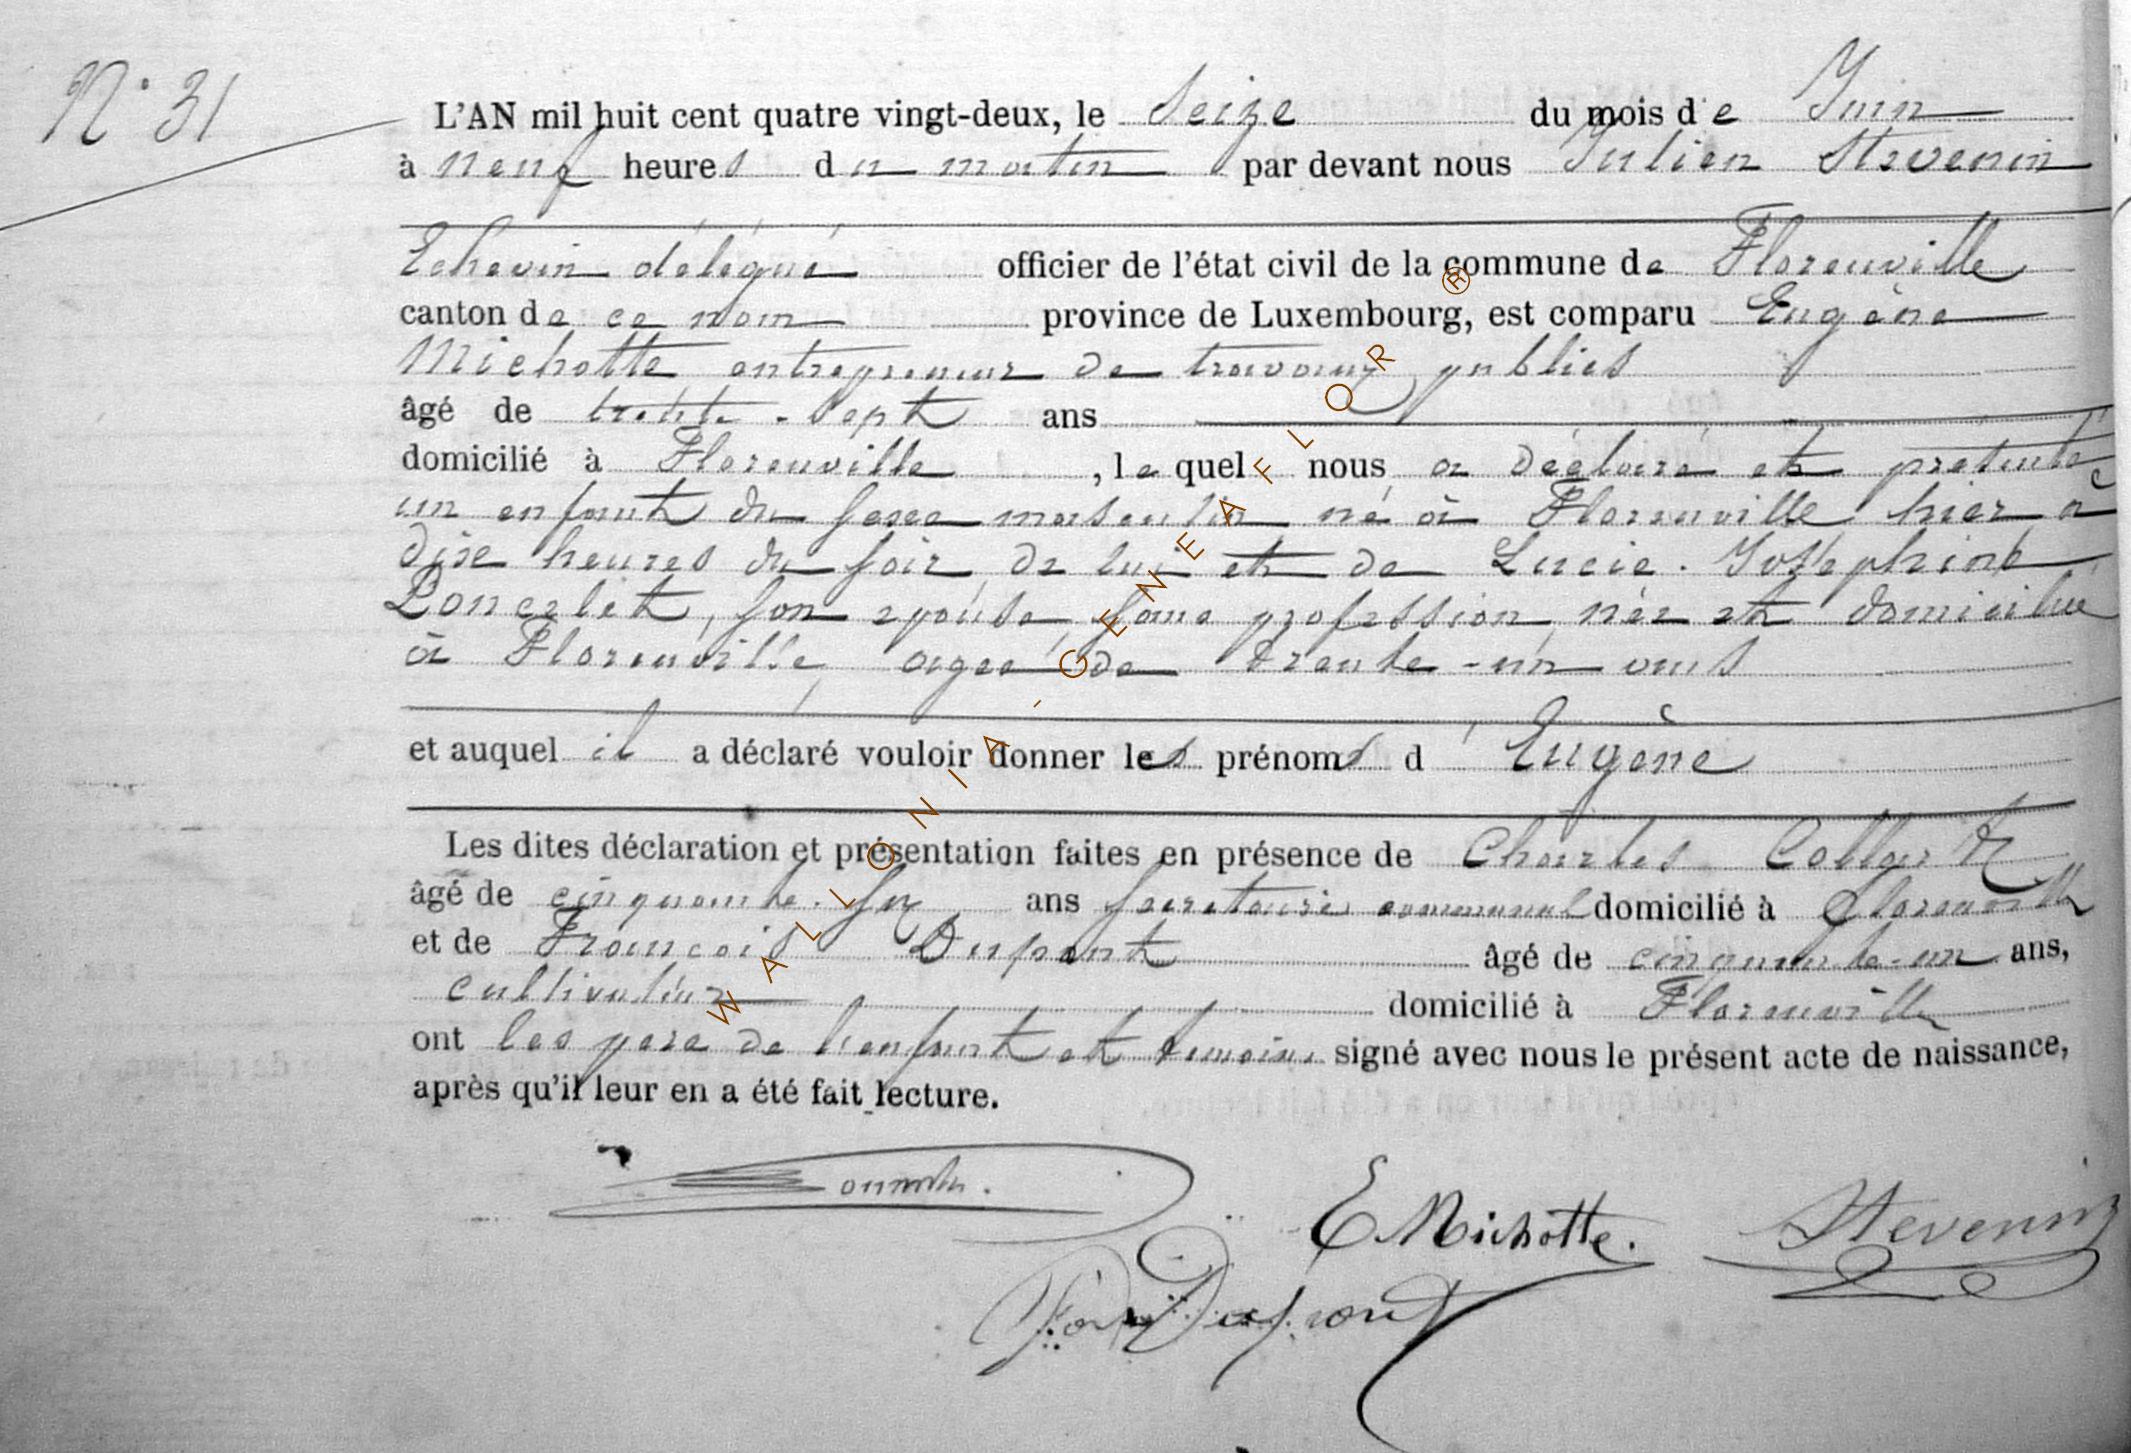 N° 31
L'AN mil huit cent quatre vingt-deux, le Seize du mois de Juin
à neuf heures du matin par devant nous Julien Stevenin
Echevin délégué officier de l'état civil de la commune de Florenville
canton de ce nom province de Luxembourg, est comparu Eugène
Michotte entrepreneur de travaux publics
âgé de trente-sept ans
domicilié à Florenville, lequel nous a déclaré et présenté
un enfant du sexe masculin né à Florenville hier à
dix heures du soir de lui et de Lucie. Josephine
Poncelet, son épouse, sans profession, née et domiciliée
à Florenville, agée de trente-un ans
et auquel il a déclaré vouloir donner les prénoms d'Eugène
Les dites déclaration et présentation faites en présence de Charles
âgé de cinquante. six ans secretaire communal domicilié à Florenville
et de François Dupont âgé de cinquante-un ans,
cultivateur domicilié à Florenville
ont les pere de l'enfant et temoins signé avec nous le présent acte de naissance,
après qu'il leur en a été fait lecture.
E Michotte. Stevenin
Dupont
WALLONIA-GENEAFLOR®